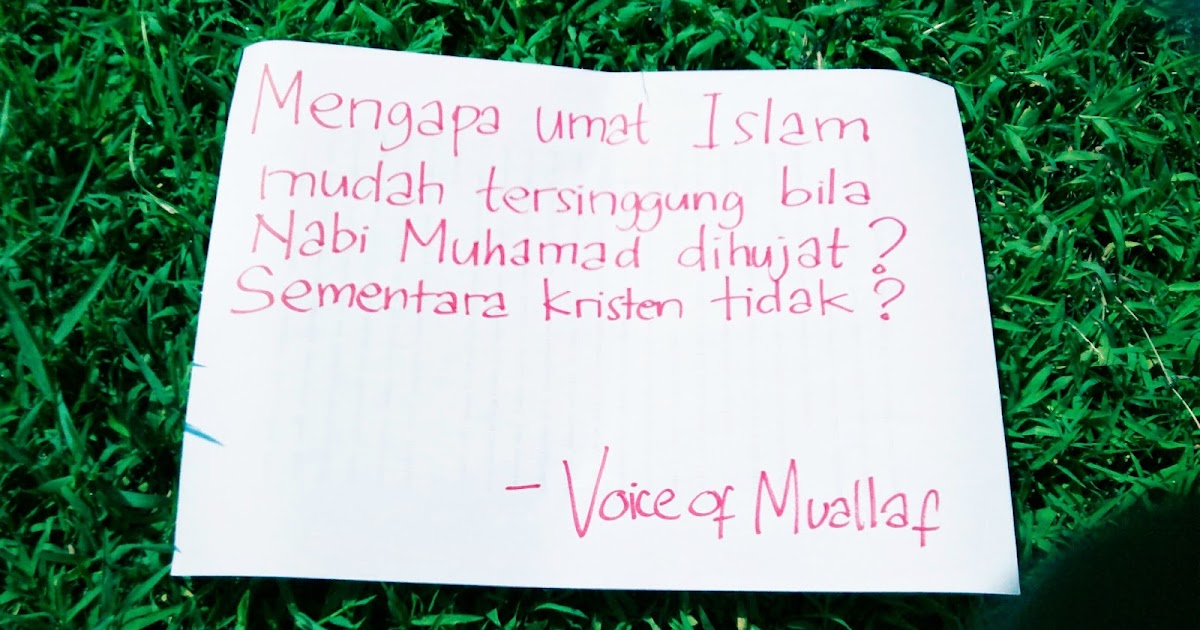 Mengapa umat Islam
mudah tersinggung bila
Nabi Muhamad dihujat?
Sementara Kristen tidak?
- Voice of Muallaf